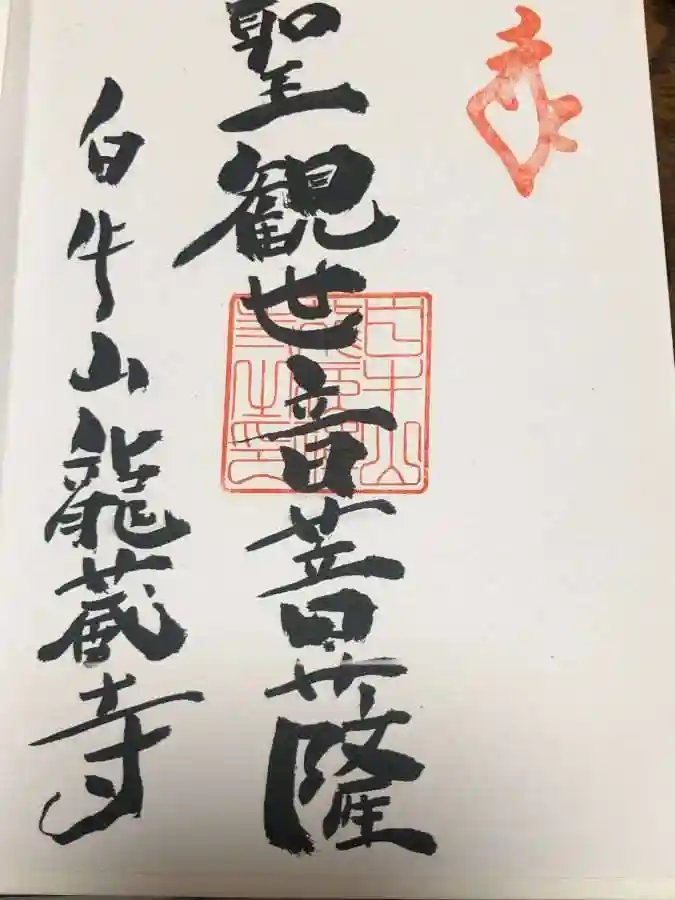 聖観世音菩薩
白牛山龍蔵寺